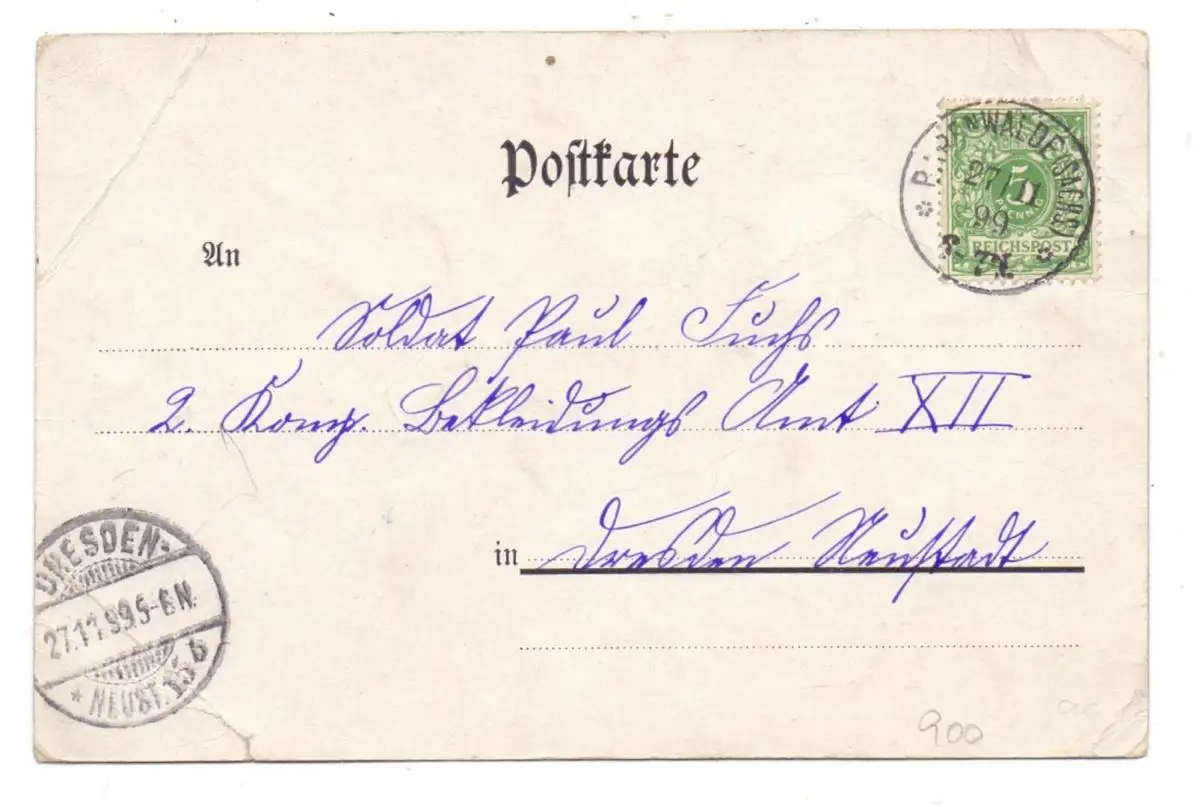 Postkarte
WALDE (SACHS)
27/11
99
5
PFENNIG
REICHSPOST
An
Soldat Paul Fuchs
2. Komp. Bekleidungs Amt XII
in Dresden Neustadt
DRESDEN-
27.11.99. 5-6 N.
* NEUST. 15 b
900